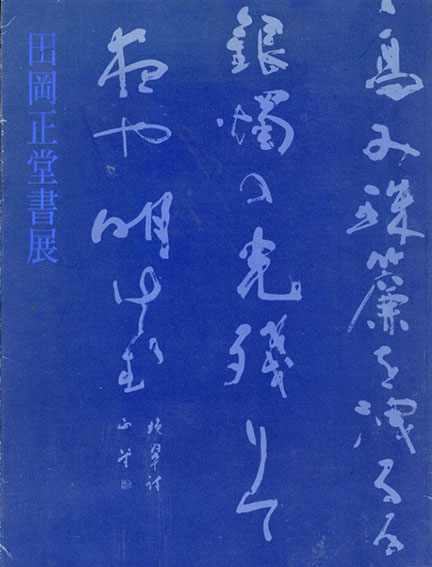 珠簾を洩る
銀燭の光残りて
や明けむ
晩翠詩
正堂
田岡正堂書展